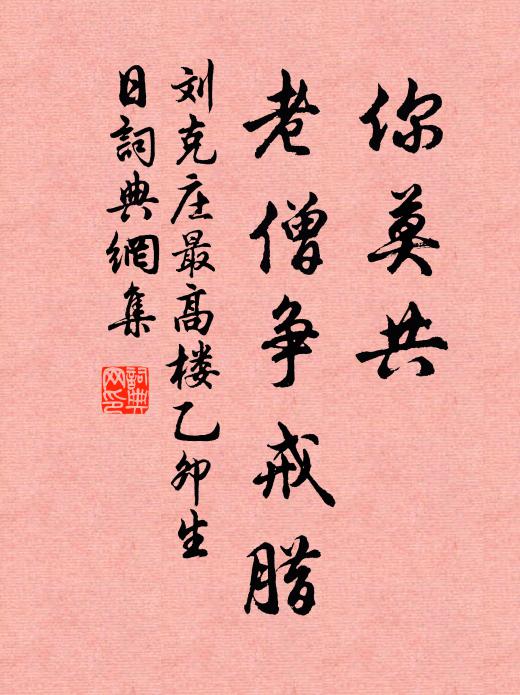 你莫共
老僧争戒腊
刘克庄最高楼乙卯生
日詞典網集
詞典
网印